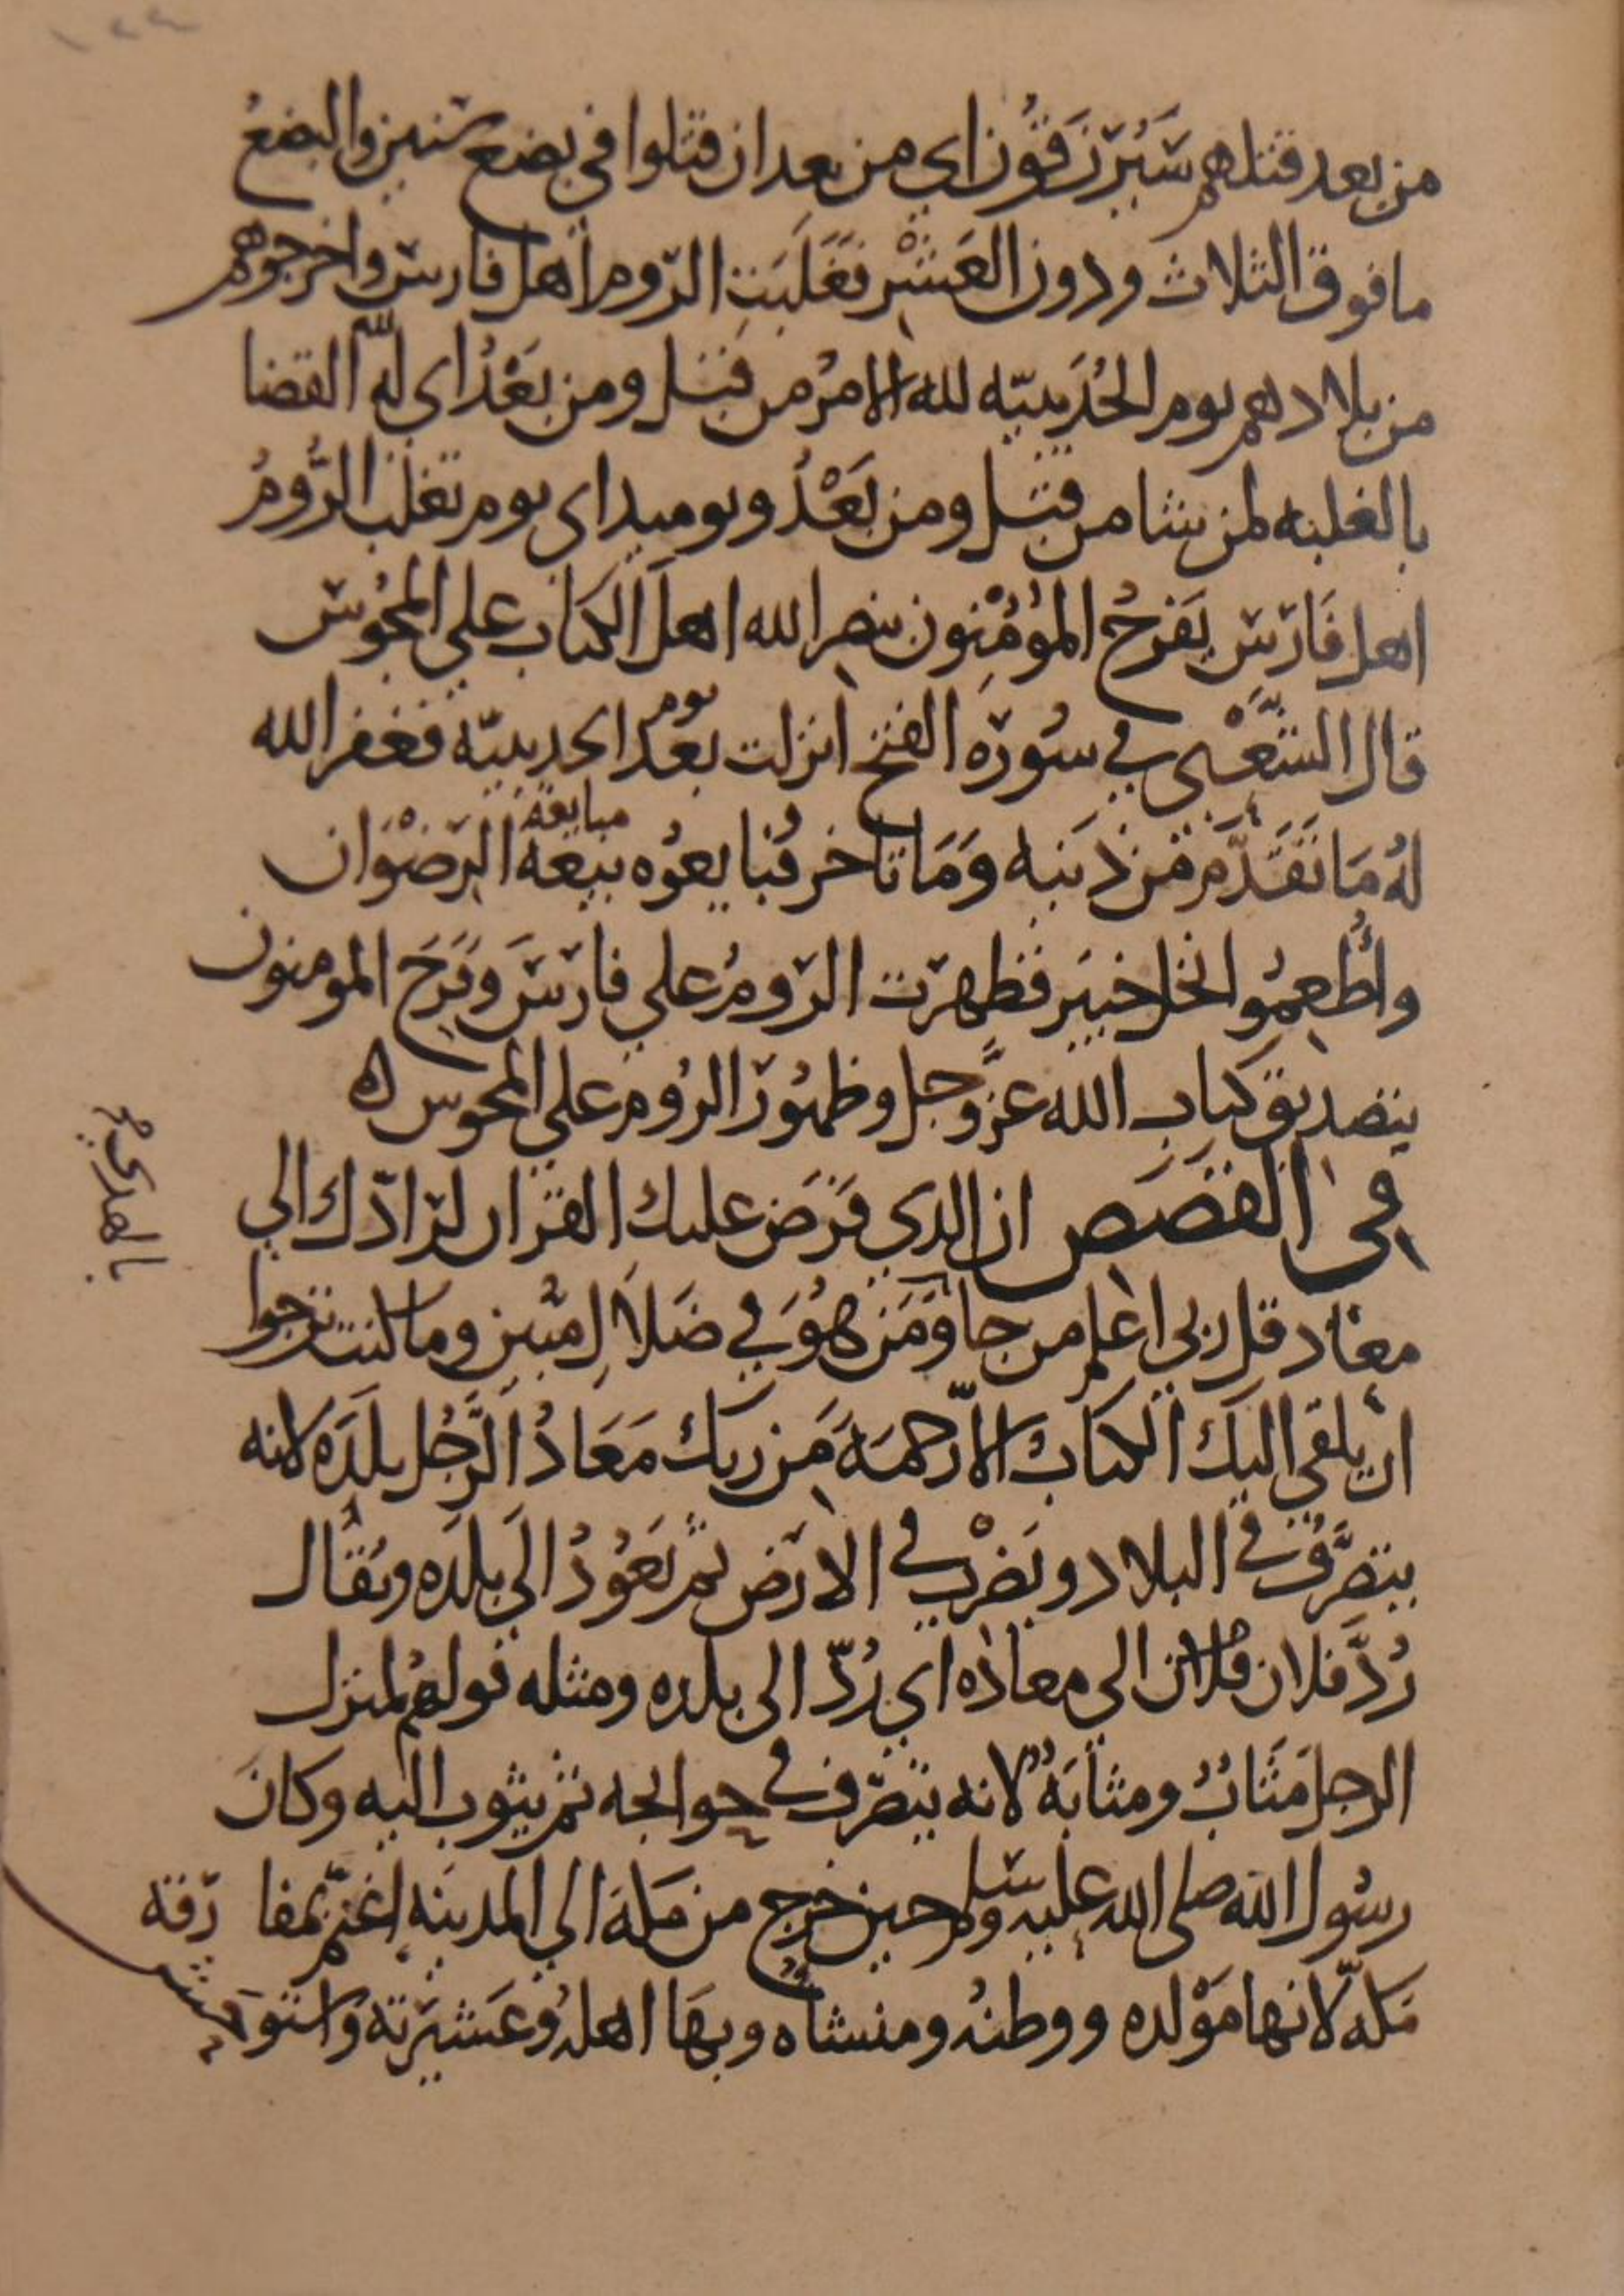 ١٤٤
من بعد قتلهم سَيُرْزَقُون اي من بعد ان قتلوا في بضع سنين والبضعُ
ما فوق الثلاث ودون العَشْر فَغَلَبَتِ الرّوم اهل فارس واخرجوهم
من بلادهم يوم الحُدَيبيّه لله الامرُ من قبل ومن بَعْدُ اي لله القضا
بالغلبه لمن يشا من قبل ومن بَعْدُ ويوميد اي يوم تغلب الرُّومُ
اهل فَارسَ يَفرحُ المؤمِنون بنصر الله اهلَ الكتاب علي المجُوس
قال الشَّعْبي في سُورة الفتح انزلت بعد يوم الحديبيّة فغفر الله
لهُ مَا تَقَدَّم من ذَنبِه وَمَا تاخر فبايعوُه مبايعة بيعة الرّضْوَان
وأُطعِمُوا نخل خيبَر فظهرت الرّومُ علي فارسَ وفَرحَ المومنون
بتصديق كتاب الله عزّ وجل وظهُور الروم علي المجوس ه
في القصَص ان الذي فَرَضَ عليك القران لرادّك الي
معاد قل ربي اعلم من جا وَمَن هُوَ في ضَلاَلٍ مُّبين وما كنت ترجوا
بالهدي
ان يلقي اليك الكتابُ الا رّحمَةً مَن ربك مَعَادُ الرَّجُل بلَدَه لانه
يتصَرَّفُ في البلاد ويَضْرب في الارض ثم يَعُوْدُ الَي بلَدِه ويُقَال
رُدَّ فلان فلان الي معادِه اي رُدّ الي بلده ومثله قولهُم لمنزل
الرجل مَثَابٌ ومثابَةٌ لانه يتصَرّف في حوايجه ثم يثوب اليه وكانَ
رسُول الله صلي الله عليه وسلم حين خرج من مَكة الي المدينه اغتمّ بمفارقة
مَكة لانها مَوْلده ووطنهُ ومنشاه وبهَا اهلهُ وعَشيرته واستوحش